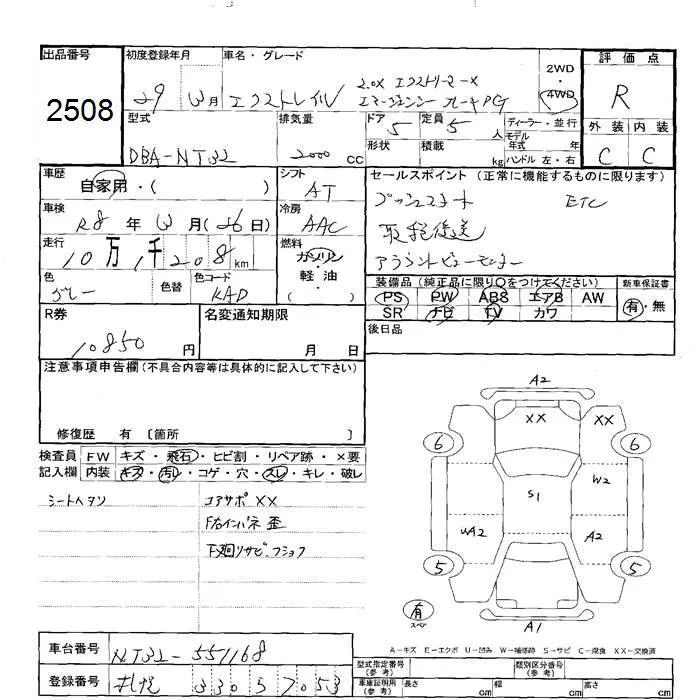 出品番号 初度登録年月 車名・グレード 2WD・4WD 評価点
2508 29 3月 エクストレイル 2.0X エクストリーマーX
エマージェンシーブレーキPG R
型式 排気量 ドア 5 定員 5 人 ディーラー・並行 外装 内装
DBA-NT32 2000 CC 形状 積載 kg モデル年式 年 ハンドル 左・右 C C
車歴 自家用・( ) シフト AT セールスポイント (正常に機能するものに限ります)
車検 R8 年 3 月 (26日) 冷房 AAC プッシュスタート ETC
取説後送
走行 10万1千208 km 燃料 ガソリン・軽油 ( ) アラウンドビューモニター
色 グレー 色替 色コード KAD 装備品 (純正品に限り○をつけてください) 新車保証書
PS PW ABS エアB AW 有・無
SR ナビ TV カワ
R券 10850 円 名変通知期限 月 日 後日品
注意事項申告欄 (不具合内容等は具体的に記入して下さい)
修復歴 有 〔箇所 〕
検査員 FW キズ・飛石・ヒビ割・リペア跡・×要
記入欄 内装 キズ・汚レ・コゲ・穴・スレ・キレ・破レ
シートヘタリ コアサポXX
F右インパネ歪
下廻りサビ、フショク
A2
XX XX
6 6
W2
S1
UA2 A2
5 5
有
スペア
A1
A-キズ E-エクボ U-凹み W-補修跡 S-サビ C-腐食 XX-交換済
車台番号 NT32-551168 型式指定番号(参考) 類別区分番号(参考)
登録番号 札幌 330 そ 7053 車庫証明用(参考) 長さ cm 幅 cm 高さ cm